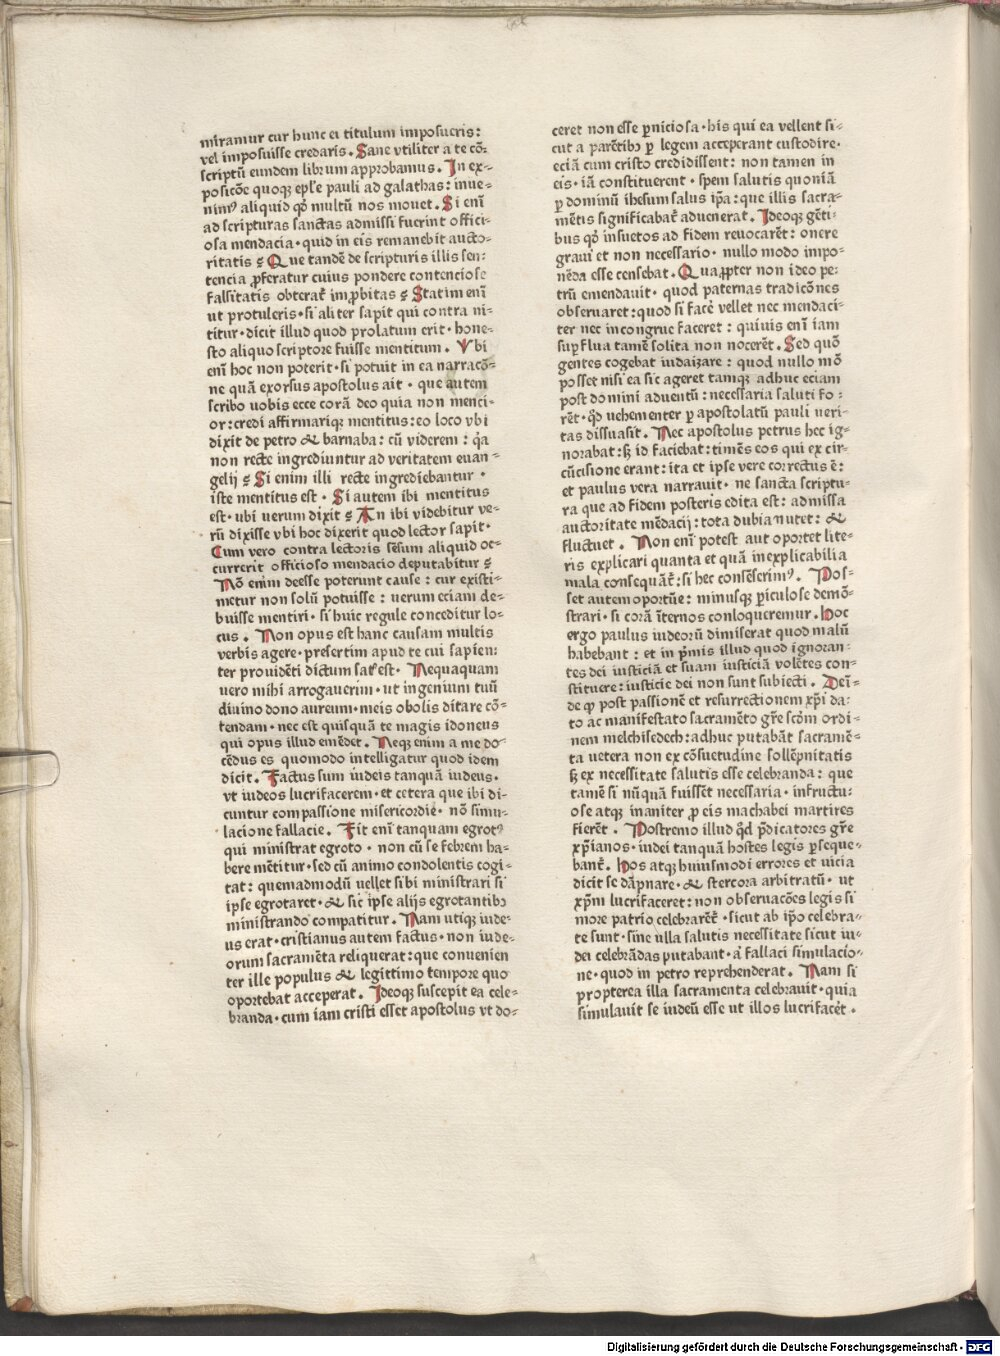 miramur cur hunc ei titulum imposueris:
vel imposuisse credaris. Sane vtiliter a te cō-
scriptū eundem librum approbamus. In ex-
posicōe quoqꝫ epl'e pauli ad galathas: inue-
nimꝰ aliquid qd̓ multū nos mouet. Si enī
ad scripturas sanctas admissi fuerint offici-
osa mendacia· quid in eis remanebit aucto-
ritatis ꝭ Que tandē de scripturis illis sen-
tencia ꝓferatur cuius pondere contenciose
falsitatis obterat̄ imꝓbitas ꝭ Statim enī
ut protuleris· si aliter sapit qui contra ni-
titur· dicit illud quod prolatum erit· hone-
sto aliquo scriptore fuisse mentitum. Vbi
enī hoc non poterit· si potuit in ea narracō-
ne quā exorsus apostolus ait· que autem
scribo uobis ecce corā deo quia non menci-
or: credi affirmariqꝫ mentitus: eo loco vbi
dixit de petro & barnaba: cū viderem: qͣa
non recte ingrediuntur ad veritatem euan-
gelij ꝭ Si enim illi recte ingrediebantur·
iste mentitus est· Si autem ibi mentitus
est· ubi uerum dixit ꝭ An ibi videbitur ve-
rū dixisse vbi hoc dixerit quod lector sapit·
Cum vero contra lectoris sēsum aliquid oc-
currerit officioso mendacio deputabitur ꝭ
Nō enim deesse poterunt cause: cur existi-
metur non solū potuisse: uerum eciam de-
buisse mentiri· si huic regule conceditur lo-
cus. Non opus est hanc causam multis
verbis agere· presertim apud te cui sapien-
ter prouidēti dictum sat̄ est. Nequaquam
uero mihi arrogauerim· ut ingenium tuū
diuino dono aureum· meis obolis ditare cō-
tendam· nec est quisquā te magis idoneus
qui opus illud emēdet. Neqꝫ enim a me do-
cēdus es quomodo intelligatur quod idem
dicit. Factus sum iudeis tanquā iudeus·
vt iudeos lucrifacerem· et cetera que ibi di-
cuntur compassione misericordie· nō simu-
lacione fallacie. Fit enī tanquam egrotꝰ
qui ministrat egroto· non cū se febrem ha-
bere mētitur· sed cū animo condolentis cogi-
tat: quemadmodū uellet sibi ministrari si
ipse egrotaret· & sic ipse alijs egrotantibꝫ
ministrando compatitur. Nam utiqꝫ iude-
us erat· cristianus autem factus· non iude-
orum sacramēta reliquerat: que conuenien
ter ille populus & legittimo tempore quo
oportebat acceperat. Ideoqꝫ suscepit ea cele-
branda· cum iam cristi esset apostolus vt do-
ceret non esse ꝑniciosa· his qui ea vellent si-
cut a parētibꝫ ꝑ legem acceperant custodire·
eciā cum cristo credidissent: non tamen in
eis· iā constituerent· spem salutis quoniā
ꝑ dominū ihesum salus ip̄a: que illis sacra-
mētis significabat̄ aduenerat. Ideoqꝫ gēti-
bus qd̓ insuetos ad fidem reuocarēt: onere
graui et non necessario· nullo modo impo-
nēda esse censebat. Quaꝓpter non ideo pe-
trū emendauit· quod paternas tradicōnes
obseruaret: quod si facē vellet nec mendaci-
ter nec incongrue faceret: quiuis enī iam
suꝑflua tamē solita non nocerēt. Sed quō
gentes cogebat iudaizare: quod nullo mō
posset nisi ea sic ageret tamqꝫ adhuc eciam
post domini aduentū: necessaria saluti fo-
rēt· qd̓ uehementer ꝑ apostolatū pauli ueri-
tas dissuasit. Nec apostolus petrus hec ig-
norabat: sꝫ id faciebat: timēs eos qui ex cir-
cūcisione erant: ita et ipse vere correctus ē:
et paulus vera narrauit· ne sancta scriptu-
ra que ad fidem posteris edita est: admissa
auctoritate mēdacij: tota dubia nutet: &
fluctuet. Non enī potest aut oportet lite-
ris explicari quanta et quā inexplicabilia
mala consequāt̄: si hec consēserimꝰ. Pos-
set autem oportūe: minusqꝫ ꝑiculose demō-
strari· si corā īternos conloqueremur. Hoc
ergo paulus iudeorū dimiserat quod malū
habebant: et in pͥmis illud quod ignoran-
tes dei iusticiā et suam iusticiā volētes con-
stituere: iusticie dei non sunt subiecti. Deī-
de ꝙ post passionē et resurrectionem xp̄i da-
to ac manifestato sacramēto gr̄e scdm̄ ordi-
nem melchisedech: adhuc putabāt sacramē-
ta uetera non ex cōsuetudine sollēpnitatis
sꝫ ex necessitate salutis esse celebranda: que
tamē si nūquā fuissēt necessaria· infructu-
ose atqꝫ inaniter ꝓ eis machabei martires
fierēt. Postremo illud qd̓ p̄dicatores gr̄e
xp̄ianos· iudei tanquā hostes legis ꝑseque-
bant̄. Hos atqꝫ huiusmodi errores et uicia
dicit se dāpnare· & stercora arbitratū· ut
xp̄m lucrifaceret: non obseruacōes legis si
more patrio celebrarēt̄· sicut ab ip̄o celebra-
te sunt· sine ulla salutis necessitate sicut iu-
dei celebrādas putabant· aͭ fallaci simulacio-
ne· quod in petro reprehenderat. Nam si
propterea illa sacramenta celebrauit· quia
simulauit se iudeū esse ut illos lucrifacēt·
Digitalisierung gefördert durch die Deutsche Forschungsgemeinschaft - DFG